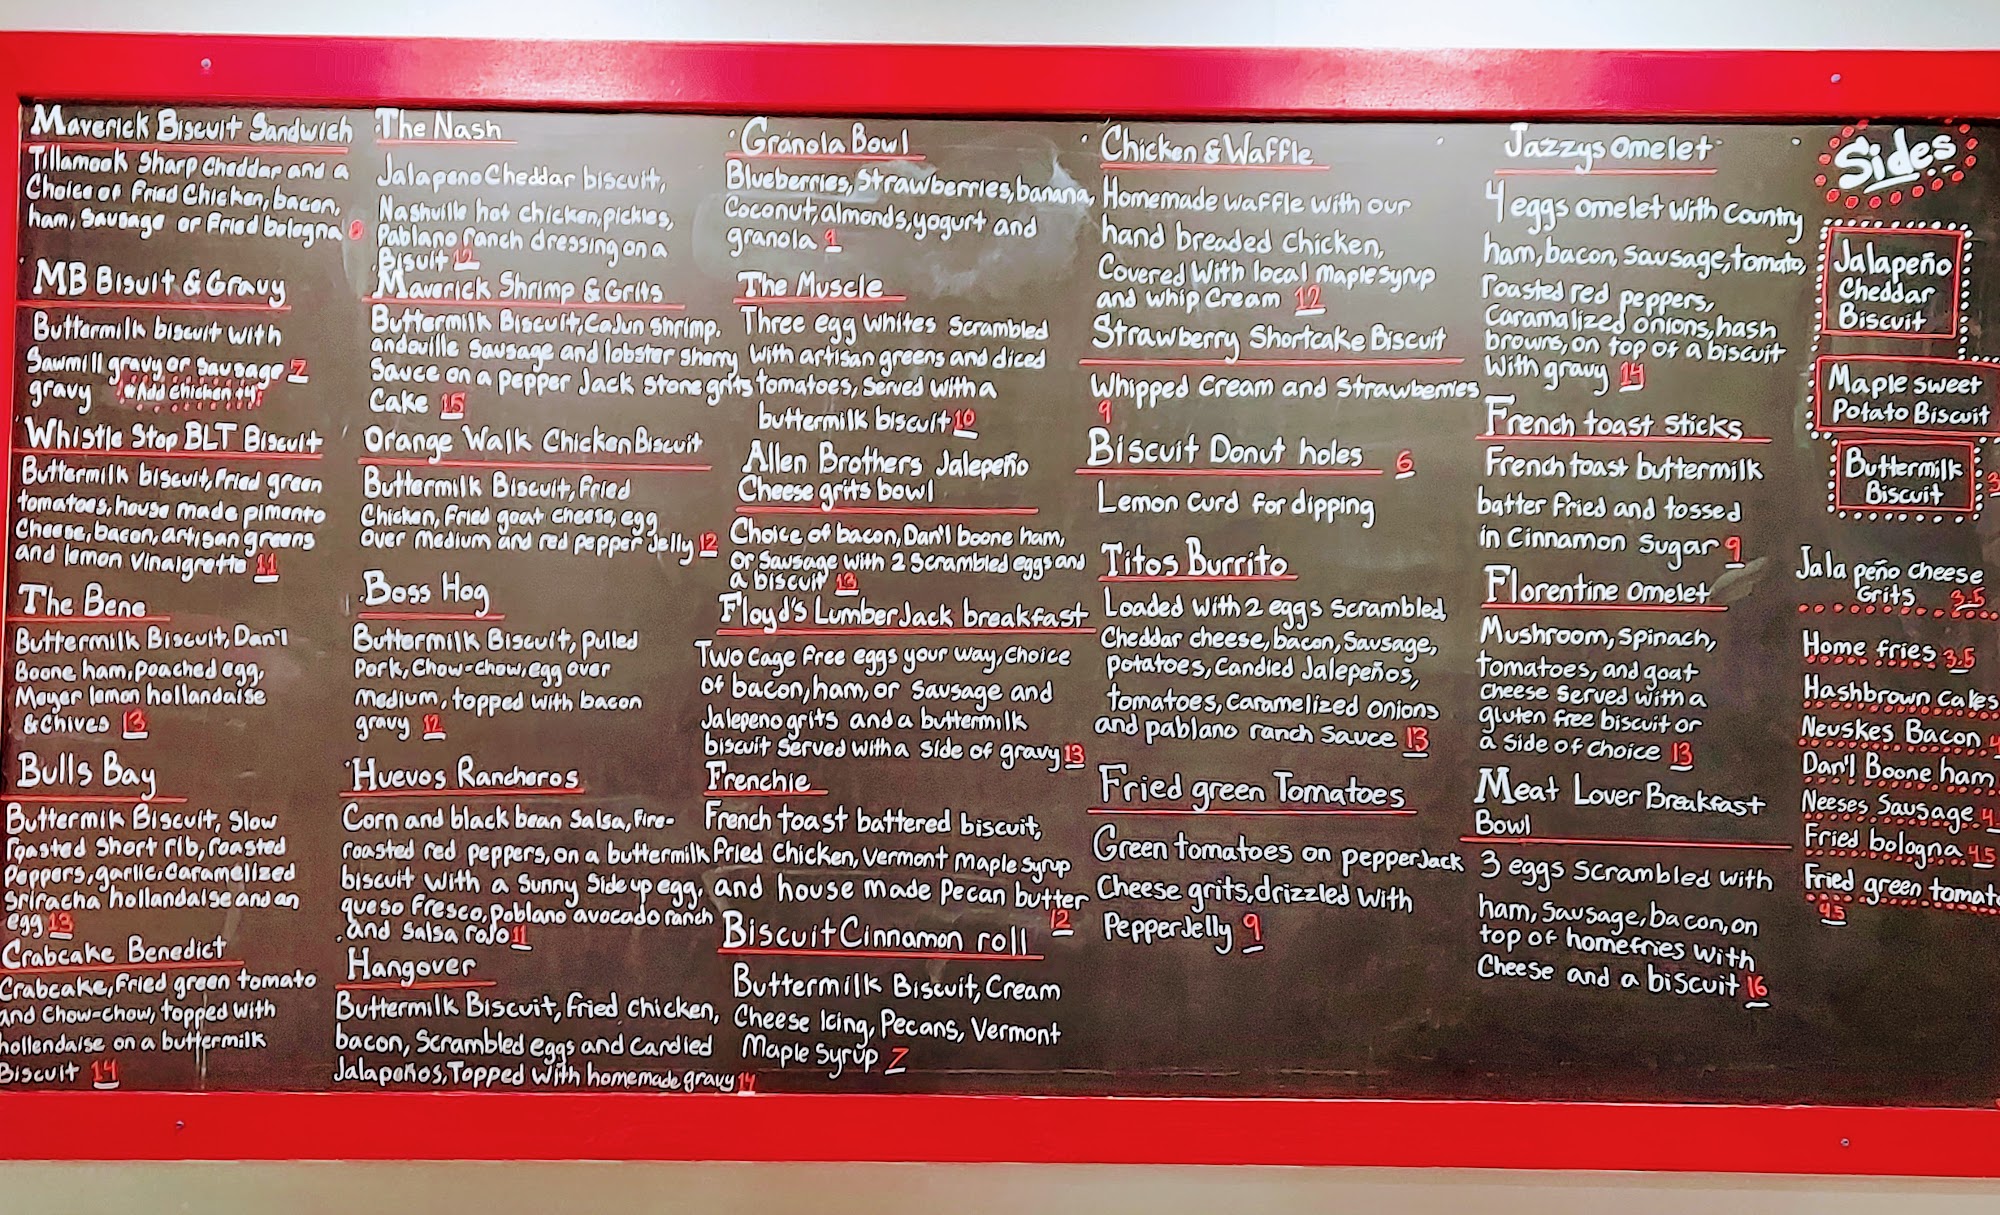 Maverick Biscuit Sandwich
Tillamook Sharp Cheddar and a
Choice of Fried Chicken, bacon,
ham, Sausage or Fried bologna 8
MB Bisuit & Gravy
Buttermilk biscuit with
Sawmill gravy or Sausage 7
gravy *Add chicken +4
Whistle Stop BLT Biscuit
Buttermilk biscuit, Fried green
tomatoes, house made pimento
Cheese, bacon, artisan greens
and lemon Vinaigrette 11
The Bene
Buttermilk Biscuit, Dan'l
Boone ham, poached egg,
Meyer lemon hollandaise
& Chives 13
Bulls Bay
Buttermilk Biscuit, Slow
roasted Short rib, roasted
Peppers, garlic, Caramelized
Sriracha hollandaise and an
egg 13
Crabcake Benedict
Crabcake, Fried green tomato
and Chow-chow, topped with
hollendaise on a buttermilk
Biscuit 14
The Nash
Jalapeno Cheddar biscuit,
Nashville hot chicken, pickles,
Pablano ranch dressing on a
Bisuit 12
Maverick Shrimp & Grits
Buttermilk Biscuit, Cajun Shrimp,
andouille Sausage and lobster Sherry
Sauce on a pepper Jack Stone grits
Cake 15
Orange Walk Chicken Biscuit
Buttermilk Biscuit, Fried
Chicken, Fried goat Cheese, egg
over medium and red pepper Jelly 12
Boss Hog
Buttermilk Biscuit, pulled
Pork, Chow-chow, egg over
medium, topped with bacon
gravy 12
Huevos Rancheros
Corn and black bean Salsa, Fire-
roasted red peppers, on a buttermilk
biscuit with a Sunny Side up egg,
queso Fresco, Poblano avocado ranch
and Salsa rojo 11
Hangover
Buttermilk Biscuit, Fried chicken,
bacon, Scrambled eggs and Candied
Jalapeños, Topped with homemade gravy 14
Granola Bowl
Blueberries, Strawberries, banana,
Coconut, almonds, yogurt and
granola 9
The Muscle
Three egg whites Scrambled
with artisan greens and diced
tomatoes, Served with a
buttermilk biscuit 10
Allen Brothers Jalepeño
Cheese grits bowl
Choice of bacon, Dan'l boone ham,
or Sausage with 2 Scrambled eggs and
a biscuit 13
Floyd's Lumber Jack breakfast
Two Cage Free eggs your way, Choice
of bacon, ham, or Sausage and
Jalepeno grits and a buttermilk
biscuit Served with a Side of gravy 13
Frenchie
French toast battered biscuit,
Fried Chicken, Vermont Maple Syrup
and house made Pecan butter
12
Biscuit Cinnamon roll
Buttermilk Biscuit, Cream
Cheese Icing, Pecans, Vermont
Maple Syrup 7
Chicken & Waffle
Homemade waffle with our
hand breaded Chicken,
Covered With local maple syrup
and whip Cream 12
Strawberry Shortcake Biscuit
Whipped Cream and Strawberries
9
Biscuit Donut holes 6
Lemon Curd for dipping
Titos Burrito
Loaded with 2 eggs Scrambled,
Cheddar cheese, bacon, Sausage,
potatoes, Candied Jalepeños,
tomatoes, Caramelized Onions
and pablano ranch Sauce 13
Fried green Tomatoes
Green tomatoes on pepper Jack
Cheese grits, drizzled With
Pepper Jelly 9
Jazzys Omelet
4 eggs omelet With Country
ham, bacon, Sausage, tomato,
roasted red peppers,
Caramalized onions, hash
browns, on top of a biscuit
With gravy 14
French toast Sticks
French toast buttermilk
batter Fried and tossed
in Cinnamon Sugar 9
Florentine Omelet
Mushroom, Spinach,
tomatoes, and goat
Cheese Served with a
gluten free biscuit or
a Side of Choice 13
Meat Lover Breakfast
Bowl
3 eggs Scrambled with
ham, Sausage, bacon, on
top of homefries with
Cheese and a biscuit 16
Sides
Jalapeño
Cheddar
Biscuit
Maple Sweet
Potato Biscuit
Buttermilk
Biscuit 3
Jalapeño Cheese
Grits 3.5
Home fries 3.5
Hashbrown Cakes
Neuskes Bacon
Dan'l Boone ham
Neeses Sausage 4
Fried bologna 4.5
Fried green tomato
4.5